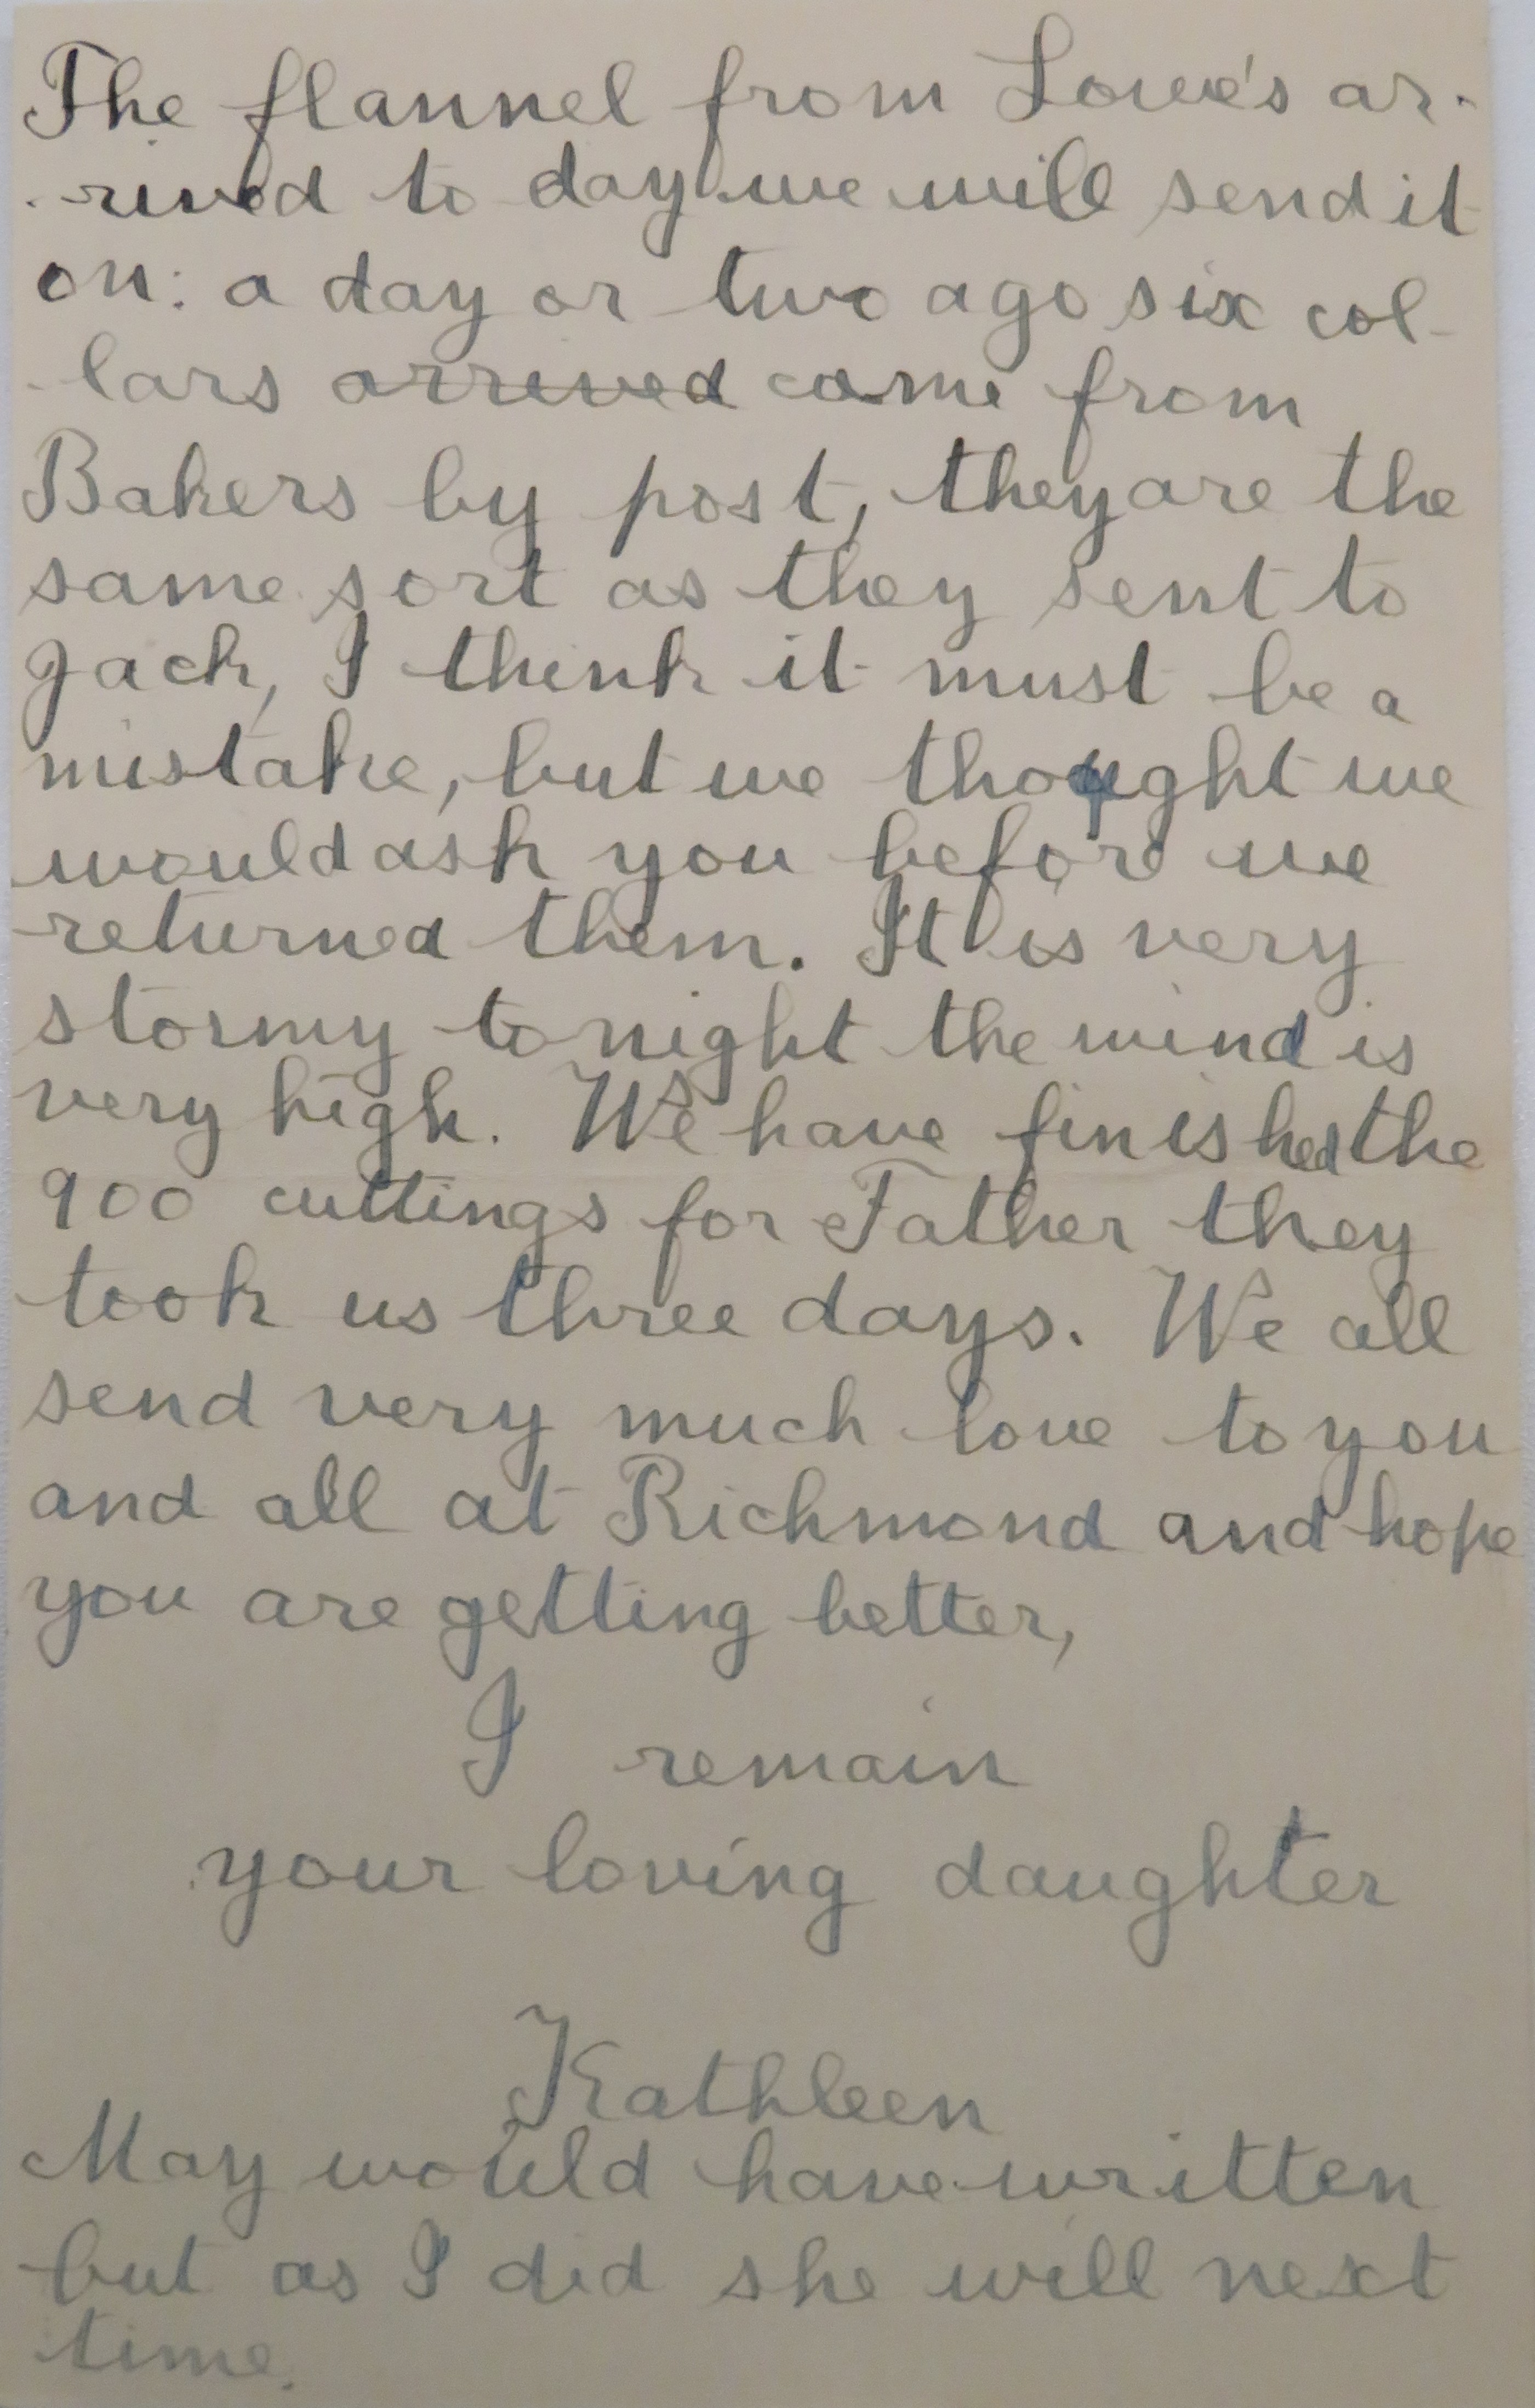 The flannel from Lowe's ar-
-rived to day we will send it
on: a day or two ago six col-
-lars arrived came from
Bakers by post, they are the
same sort as they sent to
Jack, I think it must be a
mistake, but we thought we
would ask you before we
returned them. It is very
stormy to night the wind is
very high. We have finished the
900 cuttings for Father they
took us three days. We all
send very much love to you
and all at Richmond and hope
you are getting better,
I remain
your loving daughter
Kathleen
May would have written
but as I did she will next
time.